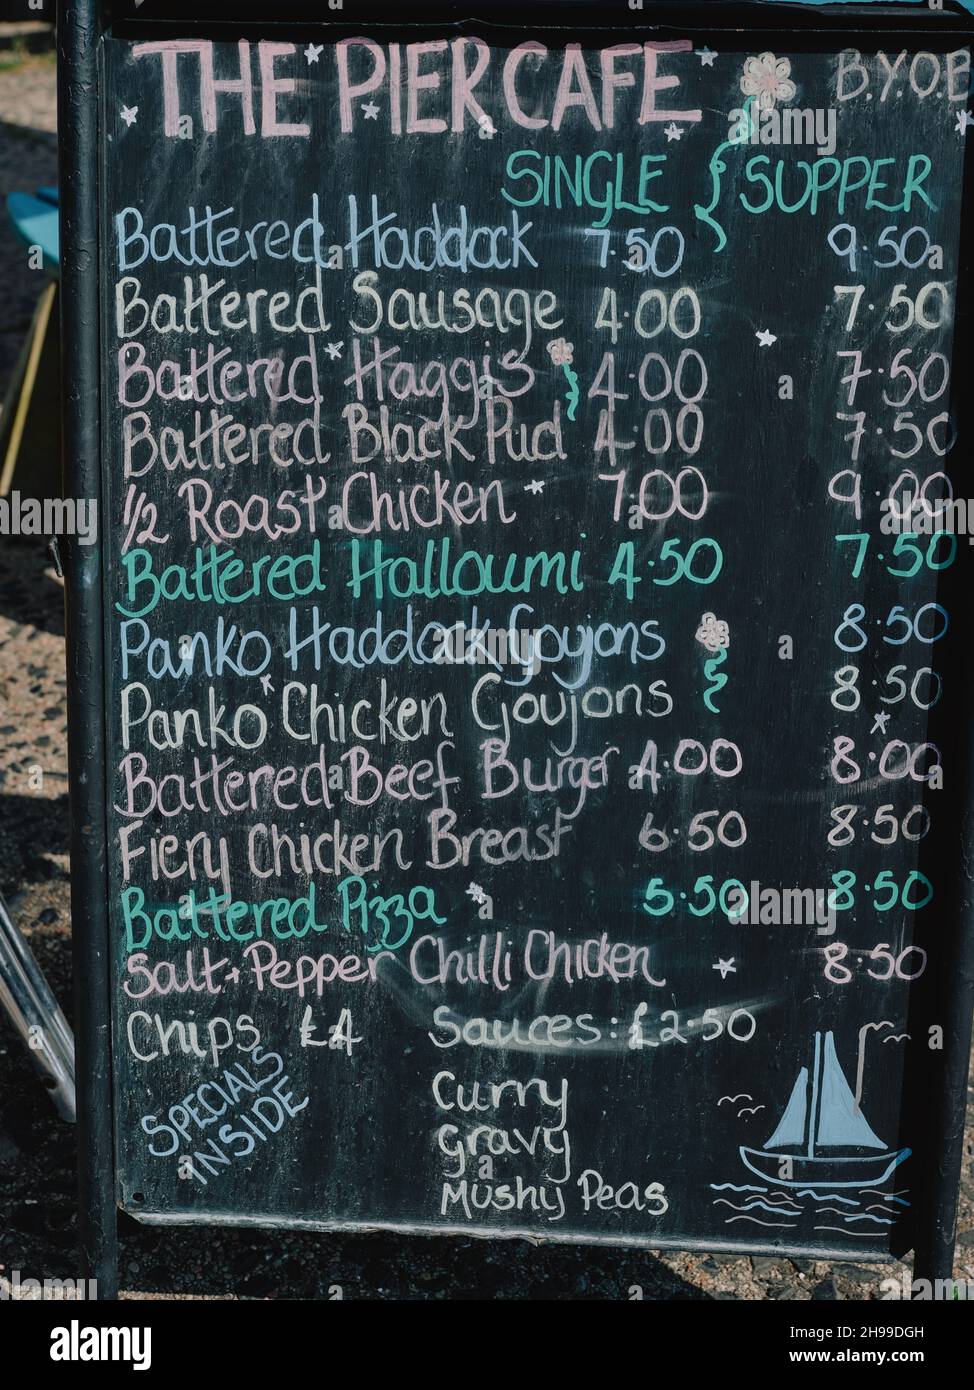 THE PIER CAFE B.Y.O.B
SINGLE SUPPER
Battered Haddock 7.50 9.50
Battered Sausage 4.00 7.50
Battered Haggis 4.00 7.50
Battered Black Pud 4.00 7.50
1/2 Roast Chicken 7.00 9.00
Battered Halloumi 4.50 7.50
Panko Haddock Goujons 8.50
Panko Chicken Goujons 8.50
Battered Beef Burger 4.00 8.00
Fiery Chicken Breast 6.50 8.50
Battered Pizza 5.50 8.50
Salt + Pepper Chilli Chicken 8.50
Chips £4 Sauces: £2.50
SPECIALS
INSIDE
Curry
Gravy
Mushy Peas
alamy
alamy
alamy
alamy
a
a
a
alamy
Image ID: 2H99DGH
www.alamy.com